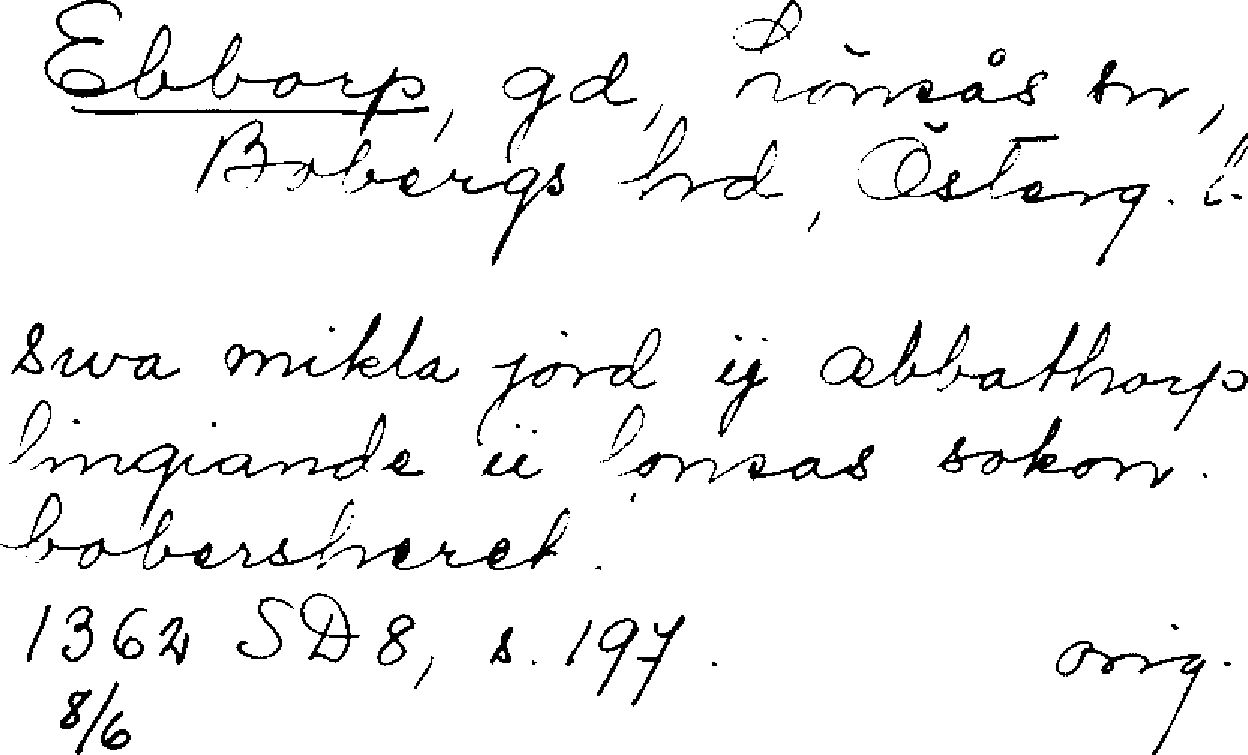 Ebborp, gd, Lönsås sn,
Bobergs hrd, Österg. l.
swa mikla jord ij æbbathorp
lingiande ii lonsas sokon.
bobersheret.
1362 SD 8, s. 197. orig.
8/6